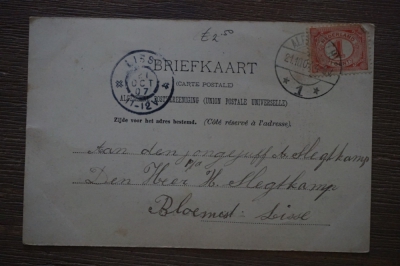 £2.50
LISSE
21
OCT
07
11-12V
4
1
BRIEFKAART
(CARTE POSTALE)
(UNION POSTALE UNIVERSELLE)
Zijde voor het adres bestemd. (Côté réservé à l'adresse.)
Aan den jongejuff A Slegtkamp
p/a
Den Heer H. Slegtkamp
Bloemist Lisse